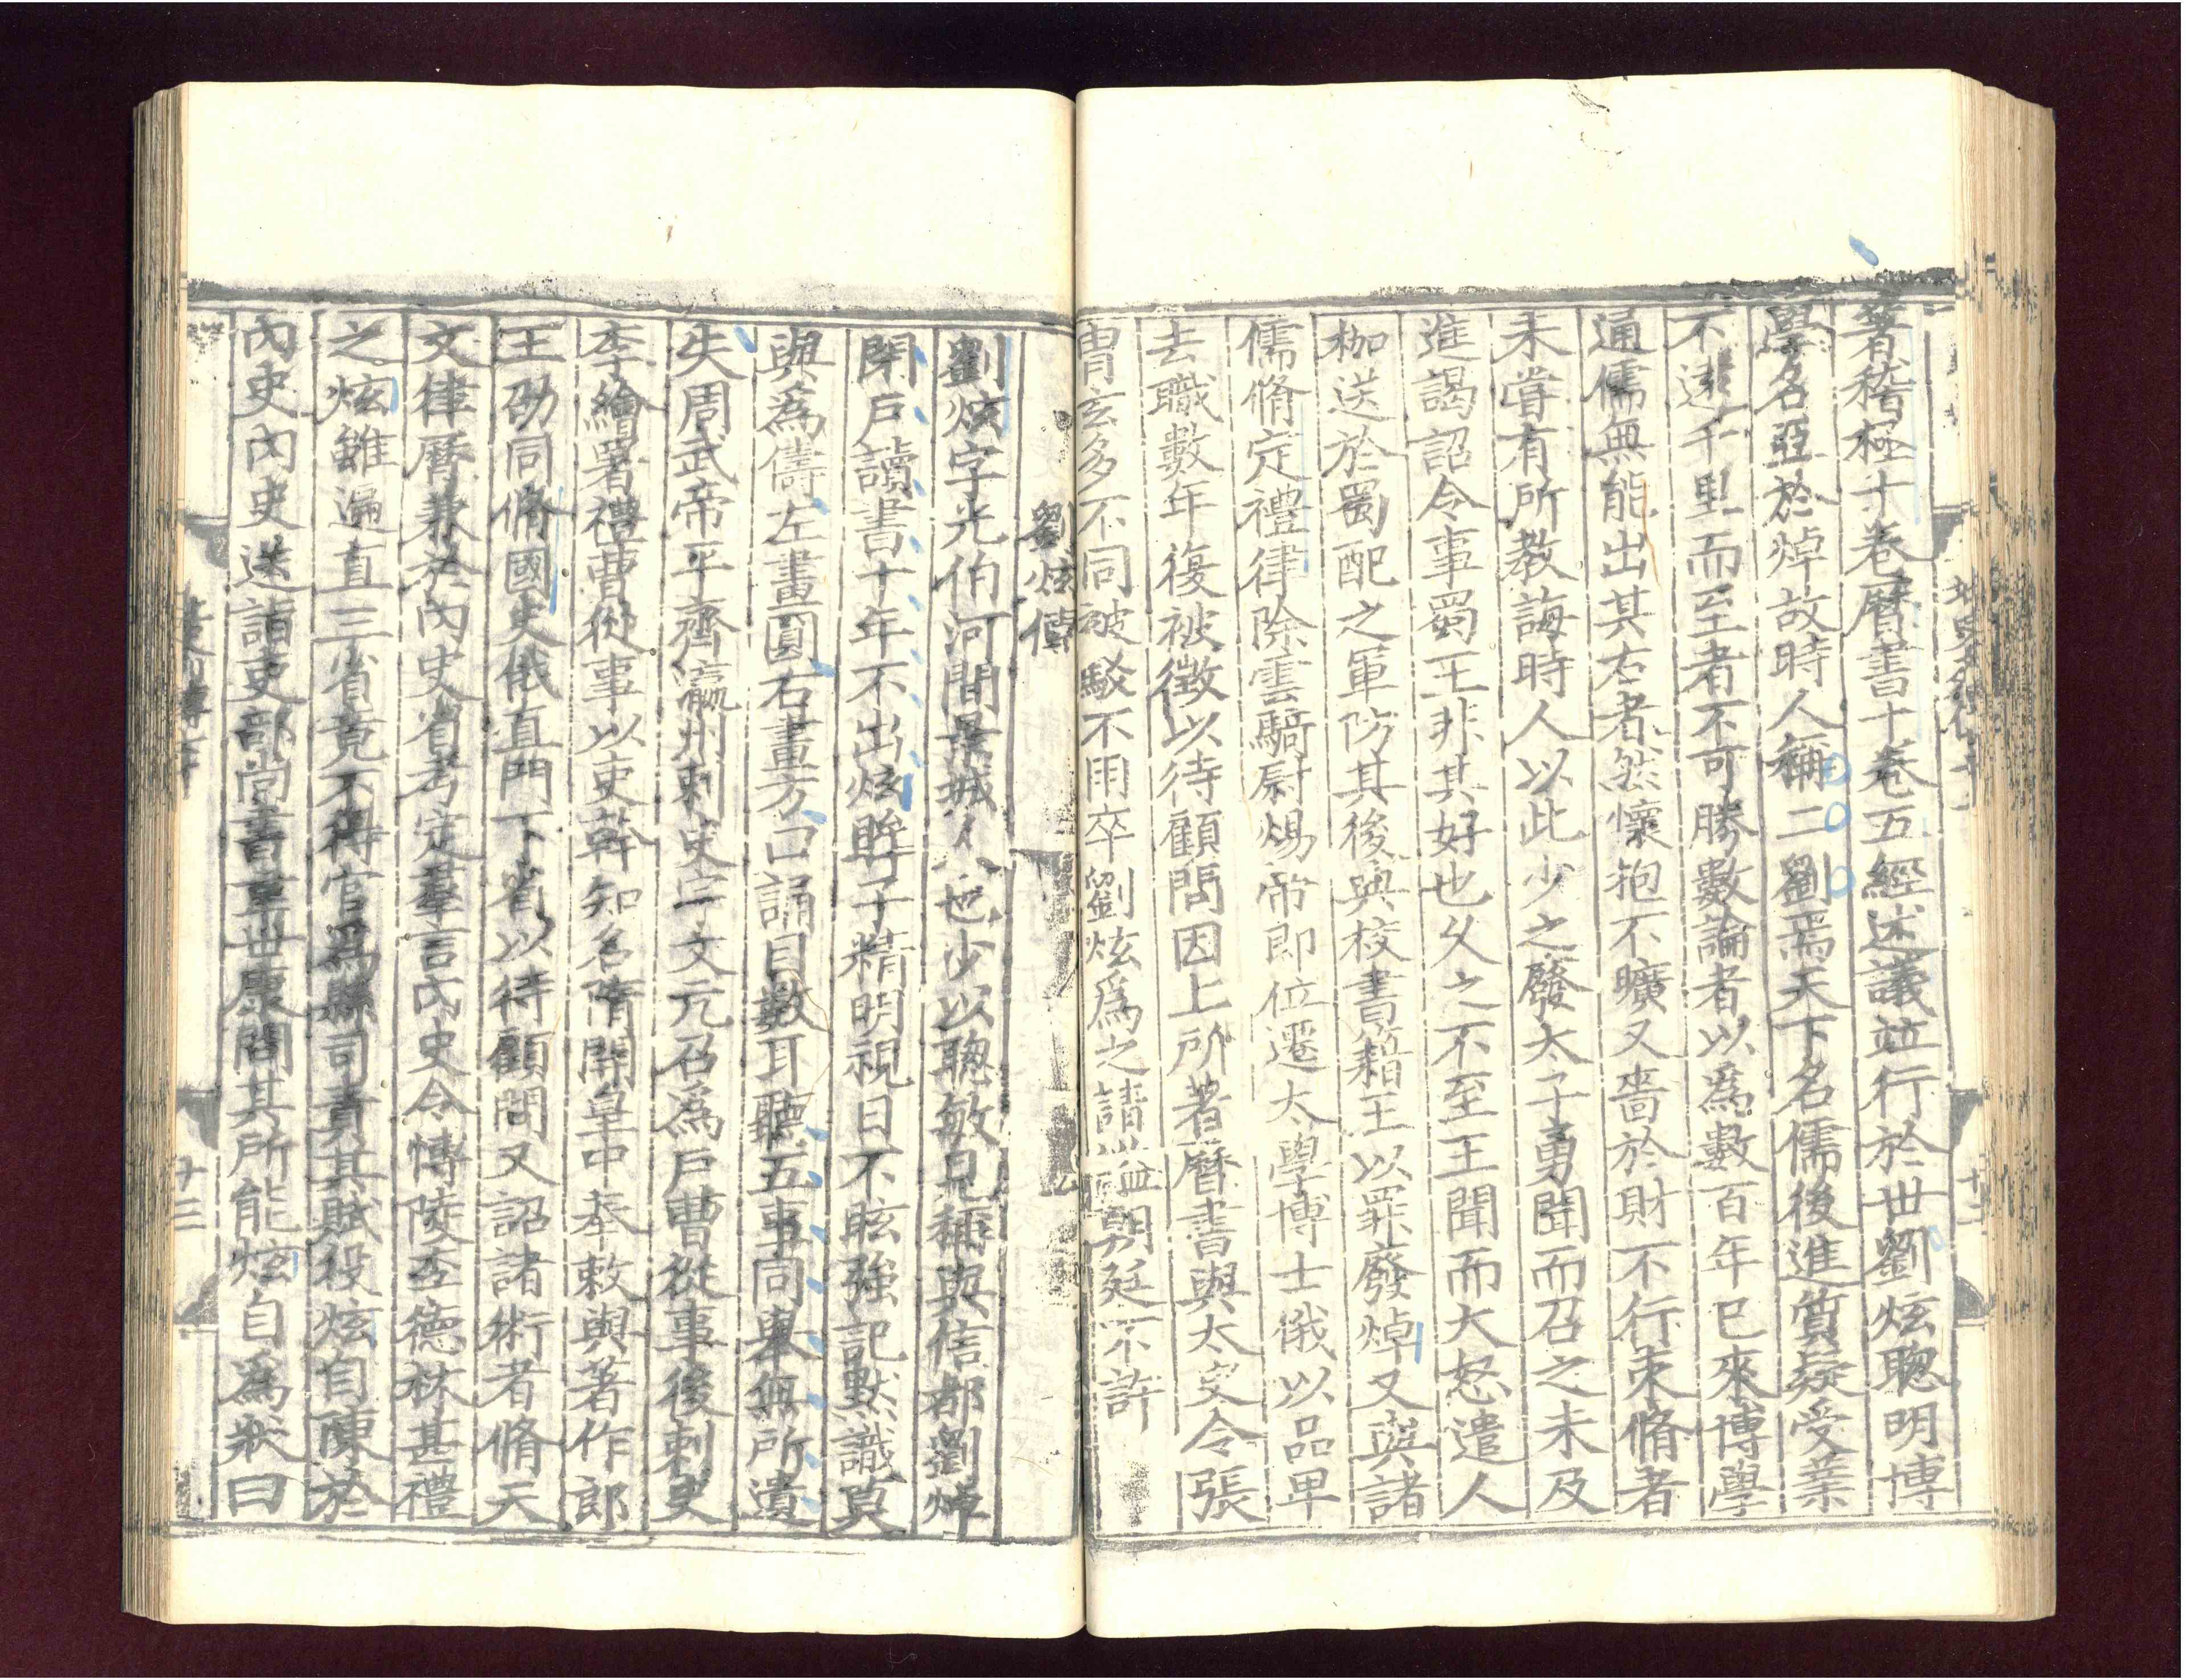 著稽極十卷曆書十卷五經述議並行於世劉炫聰明博
學名亞於焯故時人稱二劉焉天下名儒後進質疑受業
不遠千里而至者不可勝數論者以爲數百年已來博學
通儒無能出其右者然懷抱不曠又嗇於財不行束脩者
未嘗有所教誨時人以此少之廢太子勇聞而召之未及
進謁詔令事蜀王非其好也久之不至王聞而大怒遣人
枷送於蜀配之軍防其後與校書籍王以罪廢焯又與諸
儒脩定禮律除雲騎尉煬帝即位遷太學博士俄以品卑
去職數年復被徵以待顧問因上所著曆書與太史令張
胄玄多不同被駁不用卒劉炫爲之請諡朝廷不許
劉炫傳
劉炫字光伯河間景城人也少以聰敏見稱與信都劉焯
閉戶讀書十年不出炫眸子精明視日不眩強記默識莫
與爲儔左畫圓右畫方口誦目數耳聽五事同舉無所遺
失周武帝平齊瀛州刺史宇文亢召爲戶曹從事後刺史
李繪署禮曹從事以吏幹知名隋開皇中奉敕與著作郎
王劭同脩國史俄直門下省以待顧問又詔諸術者脩天
文律曆兼於內史省考定羣言內史令博陵李德林甚禮
之炫雖遍直三省竟不得官爲縣司責其賦役炫自陳於
內史內史送詣吏部尚書韋世康問其所能炫自爲狀曰
十三